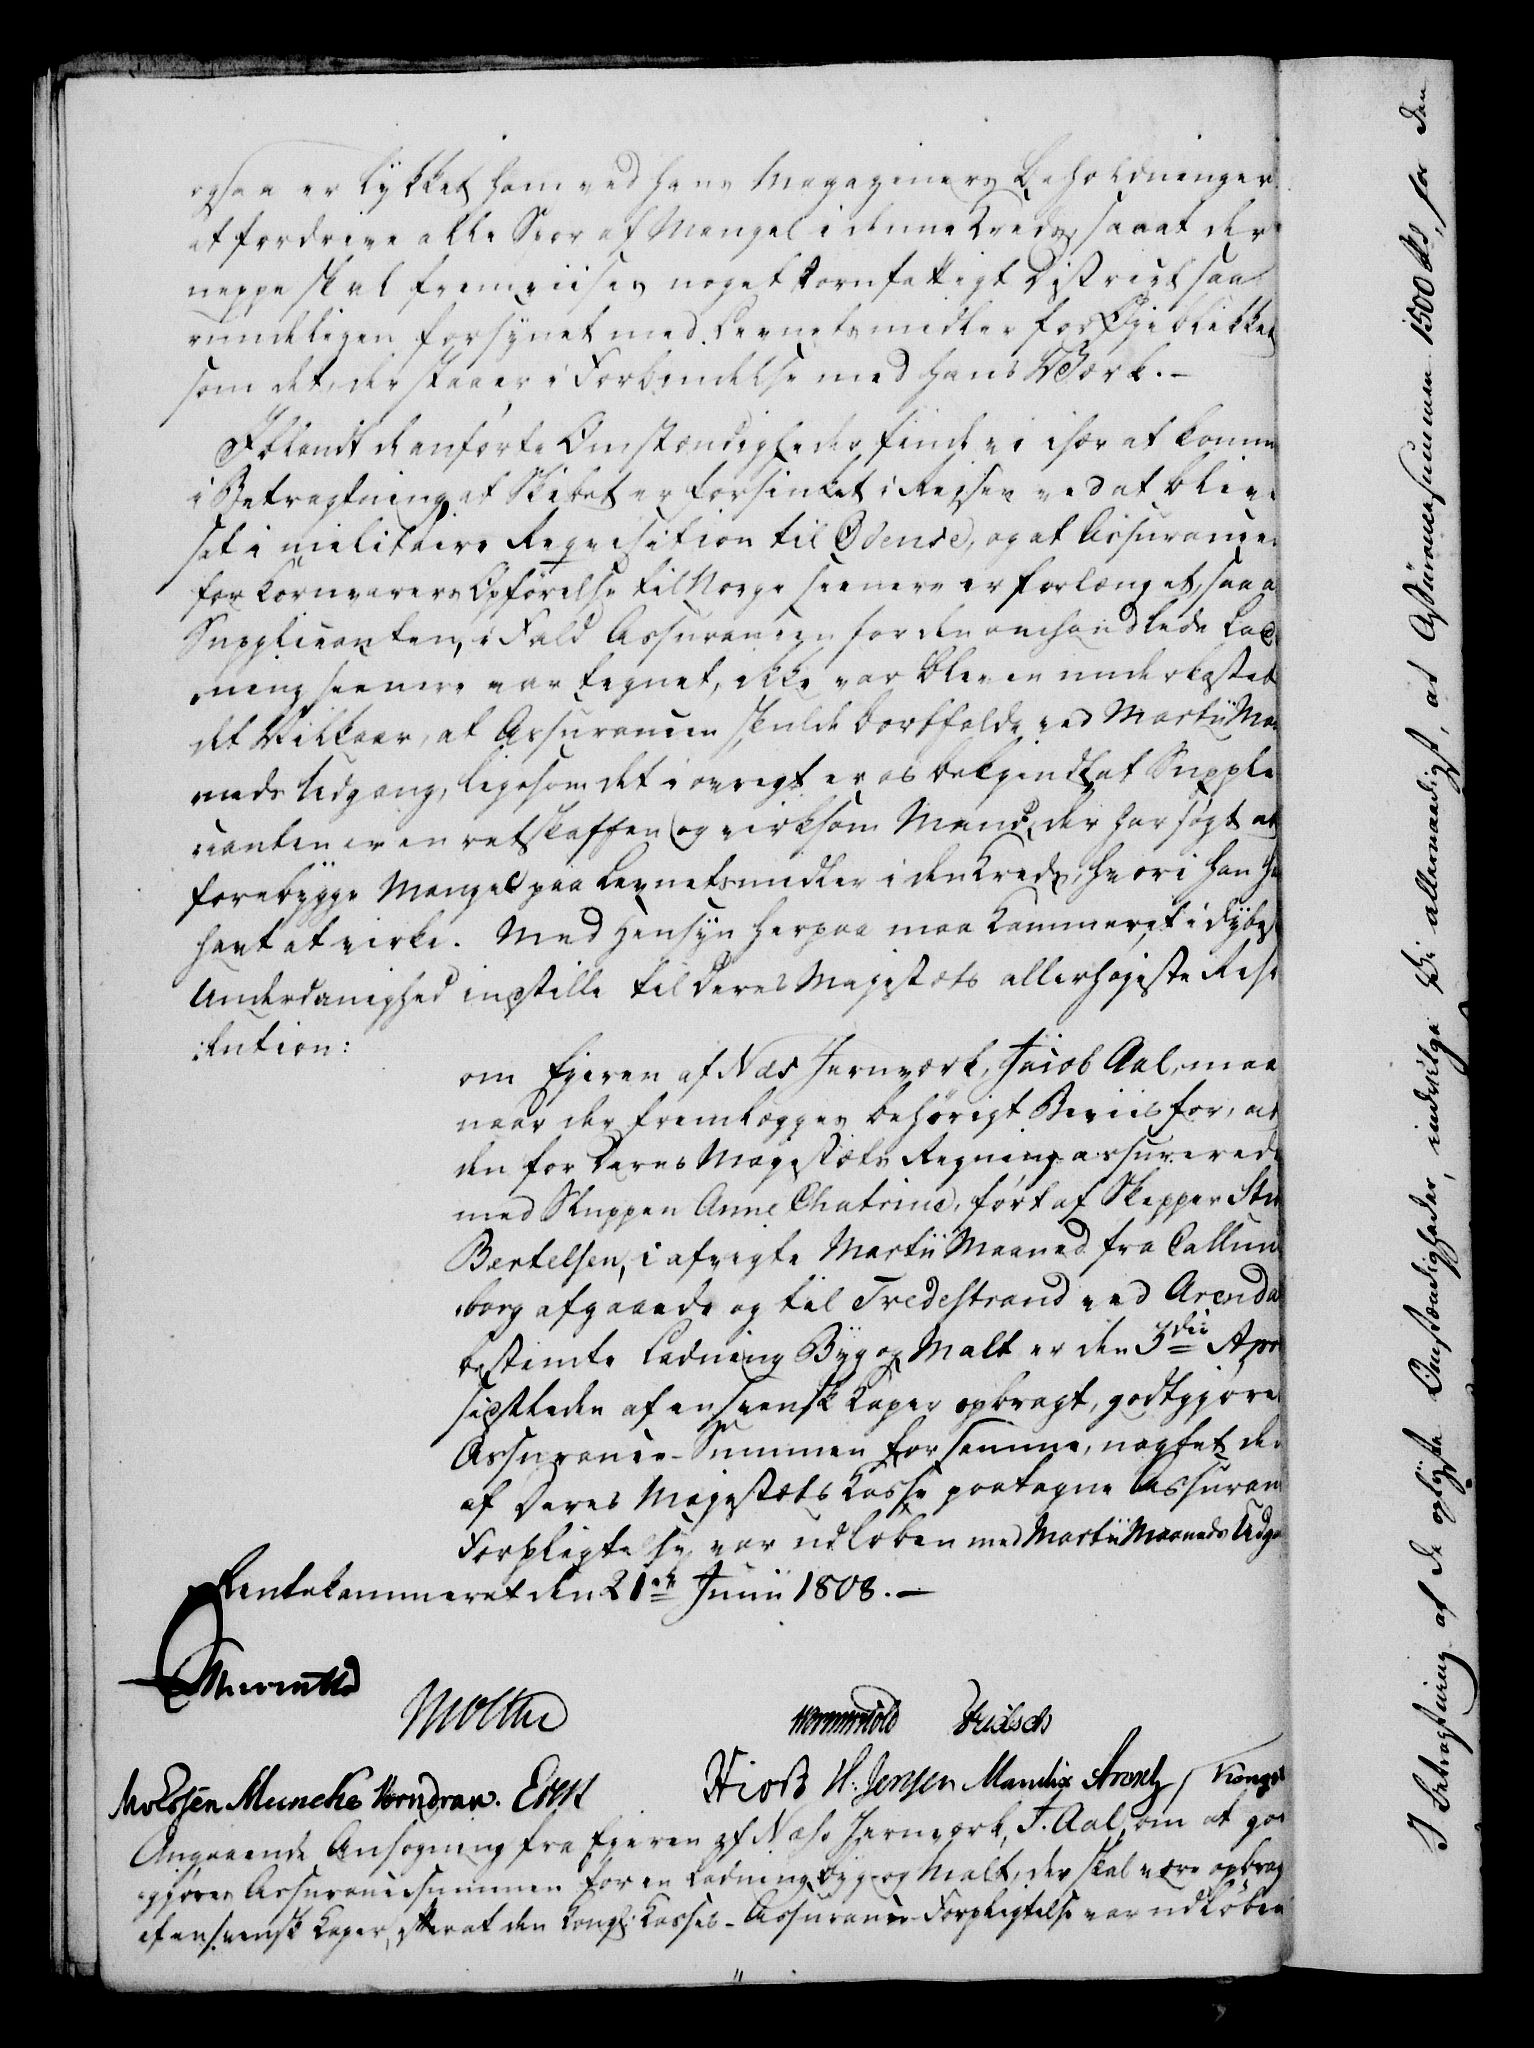 ogsaa er lykket ham ved hans Magaziners Beholdninger
at fordrive alle Spor af Mangel i denne Kreds, saa at der
neppe skal fremviises noget kornfattigt District saa
rundeligen forsynet med Levnetsmidler for Øjeblikket
som det, der staaer i Forbindelse med hans Værk. –
Iblandt de anførte Omstændigheder finde vi især at komme
i Betragtning, at Skibet er forsinket i Rejsen ved at blive
sat i militaire Reqvisition til Odense, og at Assurancen
for Kornvarers Opførelse til Norge seenere er forlænget, saa a
Supplicanten, i Fald Assurancen for den omhandlede Lad
ning seenere var tegnet, ikke var bleven underkastet
det Vilkaar, at Assurancen skulde bortfalde ved Martii Maa
neds Udgang, ligesom det i øvrigt er os bekjendt at Suppli
canten er en retskaffen og virksom Mand, der har søgt at
forebygge Mangel paa Levnetsmidler i den Kreds, hvori han ha
havt at virke. Med Hensyn herpaa maa Kammeret i dybest
Underdanighed indstille til Deres Majestæts allerhøjeste Reso
lution:
om Ejeren af Næs Jernværk, Jacob Aal, maa
naar der fremlægges behørigt Beviis for, at
den for Deres Majestæts Regning assurerede
med Sluppen Anne Chatrine, ført af Skipper
Bertelsen, i afvigte Martii Maaned fra Callun
borg afgaaede og til Tredestrand ved Arenda
bestemte Ladning Byg og Malt er den 3die Apr
sidstleden af en svensk Kaper opbragt, godtgjøre
Assurance-Summen for samme, uagtet den
af Deres Majestæts Kasse paatagne Assuran
Forpligtelse var udløben med Martii Maaneds Udga
Rentekammeret den 21de Junii 1808. –
Moltke
Hiort H. Jensen Mandix
Angaaende Ansøgning fra Ejeren af Næs Jernværk, J. Aal, om at god
gjøres Assurancesummen for en Ladning Byg og Malt, der skal være opbrag
af en svensk Kaper, efterat den Kongl. Kasses Assurance-Forpligtelse var udløben
I Betragtning af de oplyste Omstændigheder, indvilge Vi allernaadigst, at Assürancesummen 1500 Rd, for den